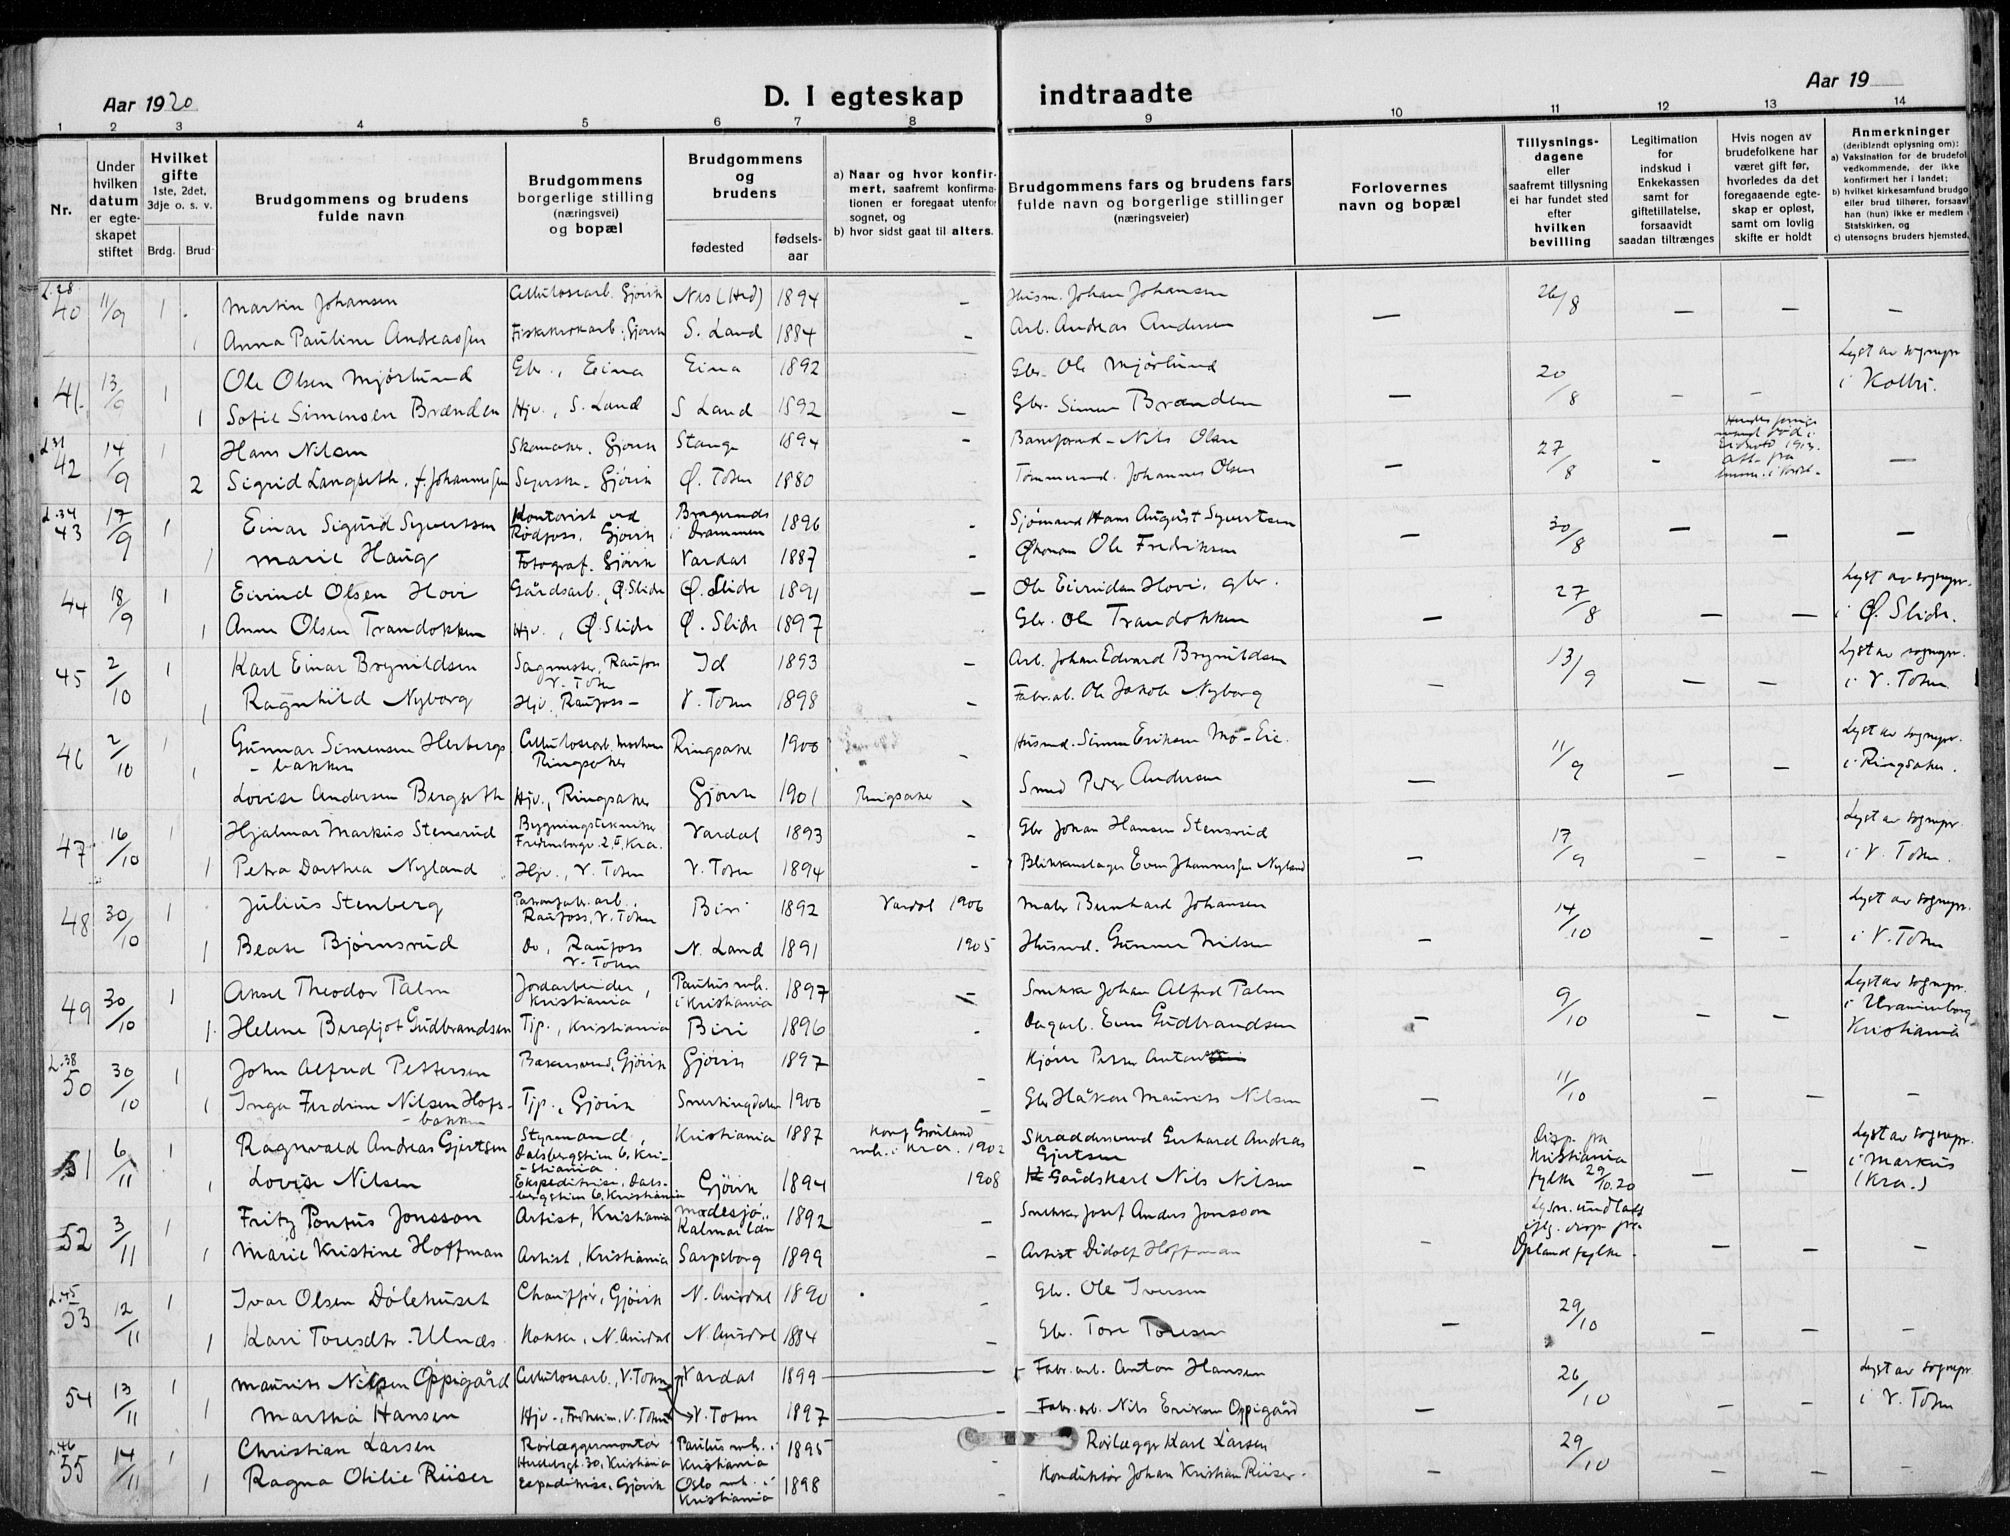 Aar 1920
D. I egteskap indtraadte
Aar 19
1 2 3 4 5 6 7 8 9 10 11 12 13 14
Nr.
Under hvilken datum er egteskapet stiftet
Hvilket gifte 1ste, 2det, 3dje o. s. v.
Brdg. Brud
Brudgommens og brudens fulde navn
Brudgommens borgerlige stilling (næringsvei) og bopæl
Brudgommens og brudens
fødested
fødselsaar
a) Naar og hvor konfirmert, saafremt konfirmationen er foregaat utenfor sognet, og
b) hvor sidst gaat til alters.
Brudgommens fars og brudens fars fulde navn og borgerlige stillinger (næringsveier)
Forlovernes navn og bopæl
Tillysningsdagene eller saafremt tillysning ei har fundet sted efter hvilken bevilling
Legitimation for indskud i Enkekassen samt for giftetillatelse, forsaavidt saadan tiltrænges
Hvis nogen av brudefolkene har været gift før, hvorledes da det foregaaende egteskap er opløst, samt om lovlig skifte er holdt
Anmerkninger (deriblandt oplysning om):
a) Vaksination for de brudefol vedkommende, der ikke konfirmert her i landet;
b) hvilket kirkesamfund brudgo eller brud tilhører, forsaavi han (hun) ikke er medlem Statskirken, og
c) utensogns bruders hjemsted.
L. 28
40 11/9 1 Martin Johansen Cellulosearb. Gjøvik Nes (Hed) 1894 – Husm. Johan Johansen – 26/8 – – –
1 Anna Pauline Andreassen Fiskekrokarb. Gjøvik S. Land 1884 – Arb. Andreas Andersen
41. 13/9 1 Ole Olsen Mjørlund Gbr., Eina Eina 1892 Gbr. Ole Mjørlund – 20/8 – – Lyst av sognepr. i Kolbu.
1 Sofie Simensen Brænden Hjv., S. Land S Land 1892 – Gbr. Simen Brænden
L. 31
42 14/9 1 Hans Nilsen Skomaker. Gjøvik Stange 1894 – Baneformd. Nils Olsen – 27/8 – –
2 Sigrid Langseth, f. Johannessen Syerske. Gjøvik Ø. Toten 1880 Tømmermd. Johannes Olsen
L. 34
43 17/9 1 Einar Sigurd Syvertsen Kontorist ved Rødfoss, Gjøvik Bragernes i Drammen 1896 – Sjømand Hans August Syvertsen – 30/8 – – –
1 Marie Haug Fotograf. Gjøvik Vardal 1887 – Økonom Ole Fredriksen
44 18/9 1 Eivind Olsen Hovi Gårdsarb., Ø. Slidre Ø. Slidre 1891 – Ole Eivindsen Hovi, gbr. – 27/8 – – Lyst av sognepr. i Ø. Slidre.
1 Anne Olsen Trandokken Hjv., Ø. Slidre Ø. Slidre 1897 Gbr. Ole Trandokken
45 2/10 1 Karl Einar Brynildsen Sagmester, Raufoss V. Toten Id 1893 – Arb. Johan Edvard Brynildsen – 13/9 – – Lyst av sognepr. i V. Toten
1 Ragnhild Nyborg Hjv. Raufoss – V. Toten 1898 – Fabr.ab. Ole Jakob Nyborg
46 2/10 1 Gunnar Simensen Herbergsbakken Cellulosearb. Ringsaker Ringsaker 1900 – Husmd. Simen Eriksen Mo-Eie. – 11/9 – – Lyst av sognepr. i Ringsaker.
1 Lovise Andersen Bergseth Hjv., Ringsaker Gjøvik 1901 Ringsaker Smed Peder Andersen
47 16/10 1 Hjalmar Markus Stensrud Bygningstekniker Fredensborgv. 2 II, Kra. Vardal 1893 – Gbr Johan Hansen Stensrud – 17/9 – – Lyst av sognepr. i V. Toten.
1 Petra Dorthea Nyland Hjv., V. Toten V. Toten 1894 – Blikkenslager Even Johannessen Nyland
48 30/10 1 Julius Stenberg Patronfabr. arb. Raufoss, V. Toten Biri 1892 Vardal 1906 Maler Bernhard Johansen – 14/10 – – Lyst av sognepr. i V. Toten
1 Beate Bjørnsrud Do, Raufoss V. Toten N. Land 1891 1905 Husmd. Gunner Nilsen
49 30/10 1 Aksel Theodor Palm Jordarbeider, Kristiania Paulus mh. i Kristiania 1897 – Snekker Johan Alfred Palm – 9/10 – – Lyst av sognepr. i Uranienborg Kristiania
1. Helene Bergljot Gudbrandsen Tjp., Kristiania Biri 1896 – Dagarb. Even Gudbrandsen
L. 38
50 30/10 1 John Alfred Pettersen Bakersvend, Gjøvik Gjøvik 1897 – Kjører Petter Anton – 11/10 – – –
1 Inga Fredrine Nilsen Hofsbakken Tjp., Gjøvik Snertingdalen 1900 – Gbr Håkon Maurits Nilsen
51 6/11 1 Ragnvald Andreas Gjertsen Styrmand, Dalsbergstien 6, Kristiania Kristiania 1887 Konf Grønland mh. i Kra. 1902 Skræddersvend Gerhard Andreas Gjertsen – Disp. fra Kristiania fylke 29/10.20 – – Lyst av sognepr. i Markus (Kra.)
1 Lovise Nilsen Ekspeditrise, Dalsbergstien 6, Kristiania Gjøvik 1894 1908 Gårdskarl Nils Nilsen
52 3/11 1 Fritz Pontus Jonsson Artist, Kristiania Madesjö, Kalmar län 1892 – Snekker Josef Anders Jonsson – Lysn. undlatt iflg. disp fra Opland fylke. – – –
1 Marie Kristine Hoffman Artist, Kristiania Sarpsborg 1899 – Artist Didolf Hoffman
L. 45
53 12/11 1 Ivar Olsen Dølehuset Chauffør, Gjøvik N. Aurdal 1890 – Gbr. Ole Iversen – 29/10 – – –
1 Kari Toresdtr. Ulnæs Kokke, N. Aurdal N. Aurdal 1884 – Gbr. Tore Toresen
54 13/11 1 Maurits Nilsen Oppigård Cellulosearb., V. Toten Vardal 1899 – Fabr. arb. Anton Hansen – 26/10 – – Lyst av sognepr. i V. Toten
1 Martha Hansen Hjv., Fredheim, V. Toten V. Toten 1897 – Fabr. arb. Nils Eriksen Oppigård
L. 46
55 14/11 1 Christian Larsen Rørlæggermontør Kristiania Paulus mh. i Kristiania 1895 – Rørlægger Karl Larsen – 29/10 – – –
1 Ragna Otilie Riiser Expeditrise, Gjøvik Oslo mh. i Kristiania 1898 – Konduktør Johan Kristian Riiser.